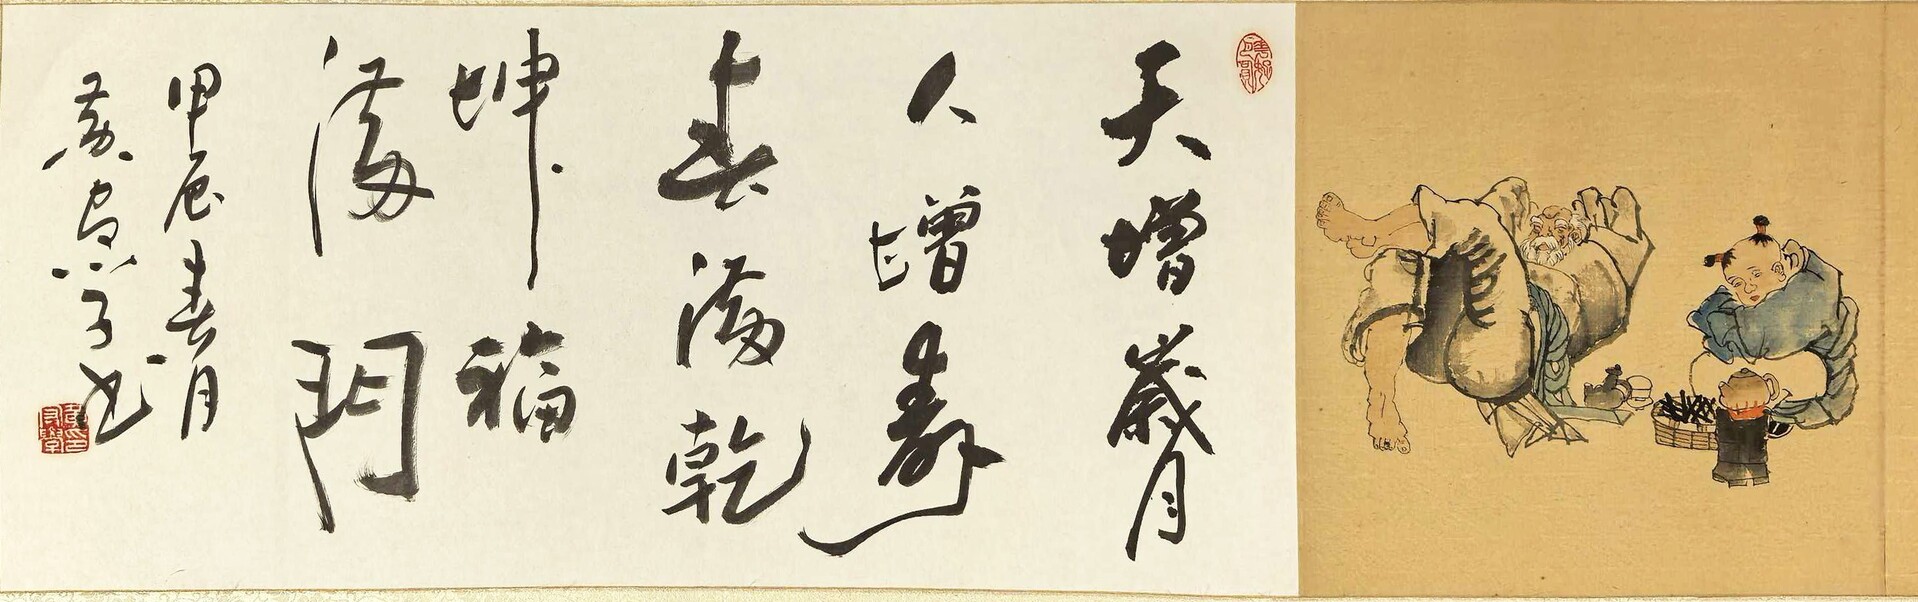 天增歲月
人增壽
春滿乾
坤福
滿門
甲辰春月
黃君實書